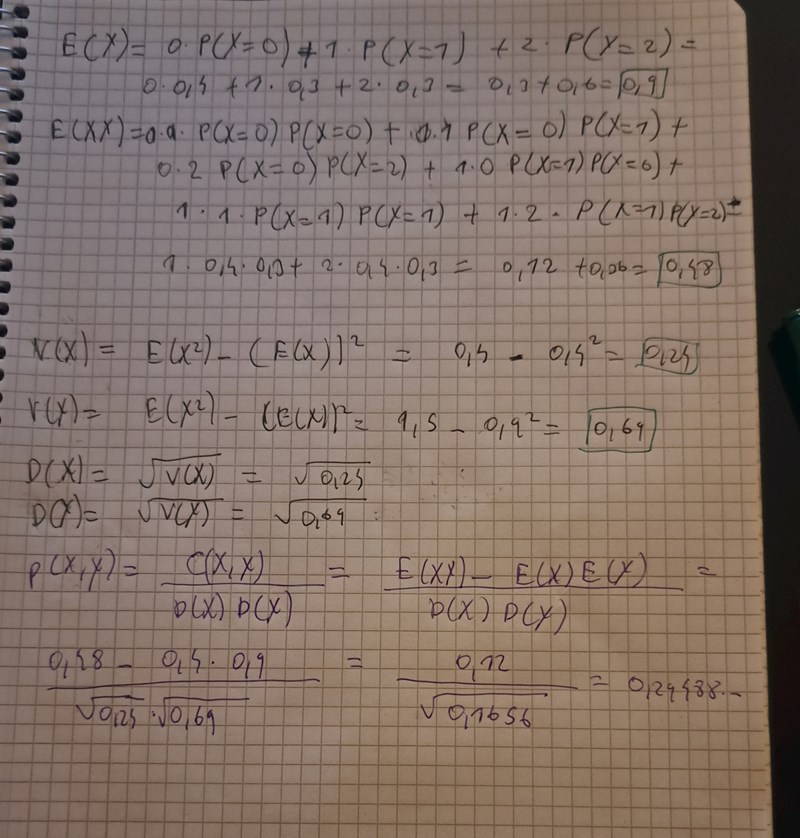 E(X)= 0·P(X=0)+1·P(X=1) +2·P(X=2)=
0·0,4+1·0,3+2·0,3= 0,3+0,6=0,9
E(XX)=0.0.P(X=0)P(X=0)+0.1P(X=0)P(X=1)+
0.2 P(X=0)P(X=2)+1.0P(X=1)P(X=0)+
1·1·P(X=1)P(X=1)+1·2·P(X=1)P(X=2)=
1·0,4·0,3+2·0,4·0,3= 0,12+ =0,48
V(X)= E(X²)-(E(X))² = 0,4 - 0,4²=0,24
V(X)= E(X²)-(E(X))²= 1,5-0,9²=0,69
D(X)= √V(X) = √0,24
D(X)= √V(X) = √0,69
ρ(X,Y)= C(X,X)/D(X)D(X) = E(XX)-E(X)E(X)/D(X)D(Y) =
0,48 - 0,4·0,9/√0,24·√0,69 = 0,12/√0,1656 = 0,29488..